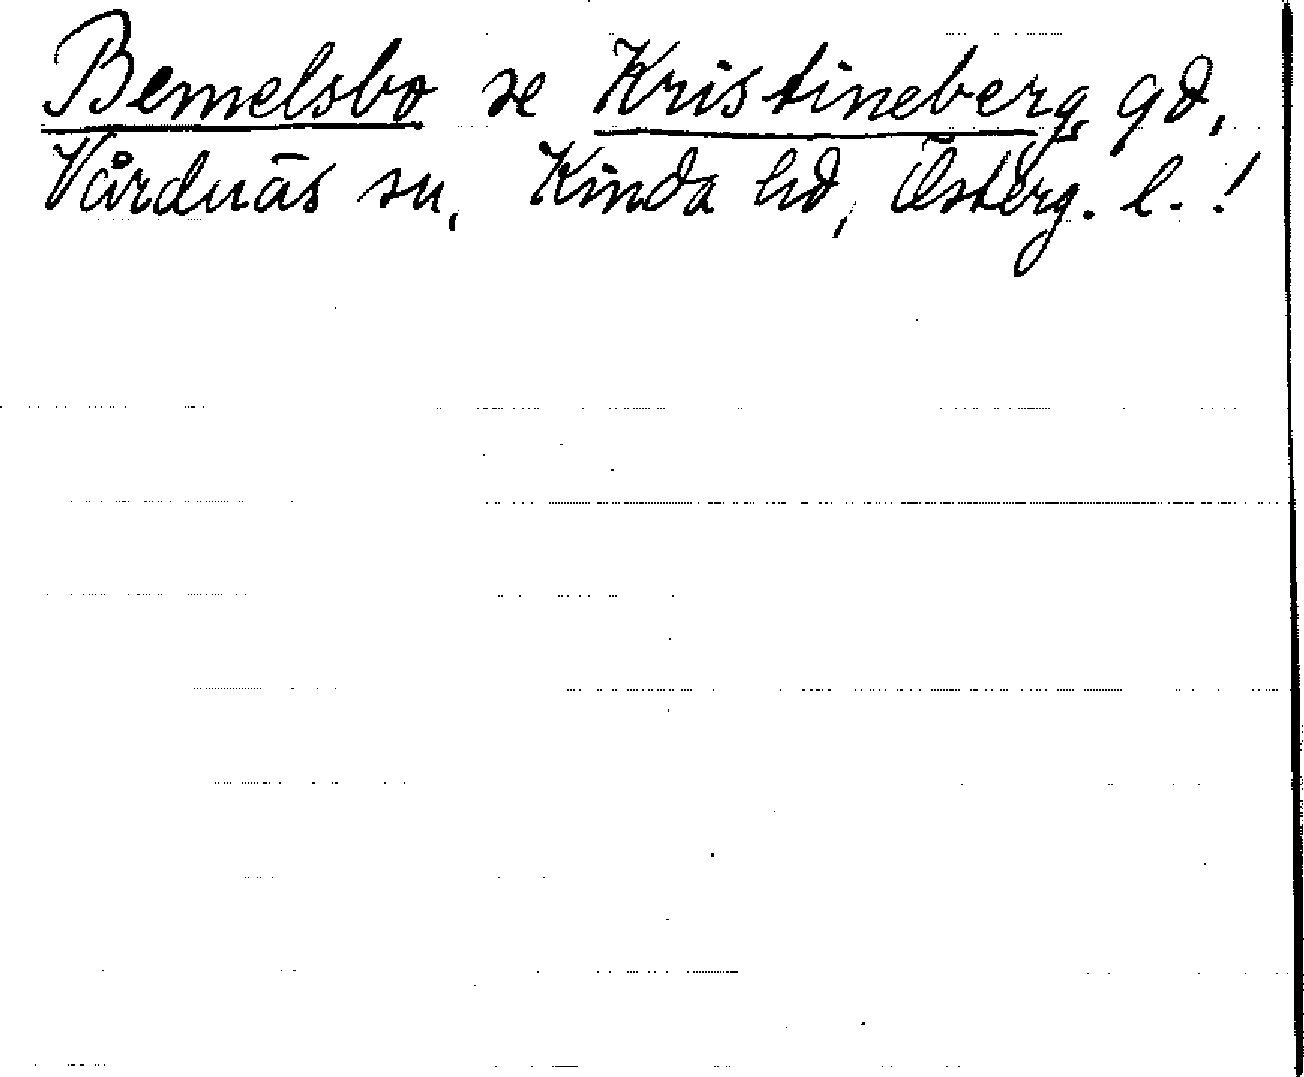 Bemelsbo se Kristineberg gd,
Vårdnäs sn, Kinda hd, Österg. l. !